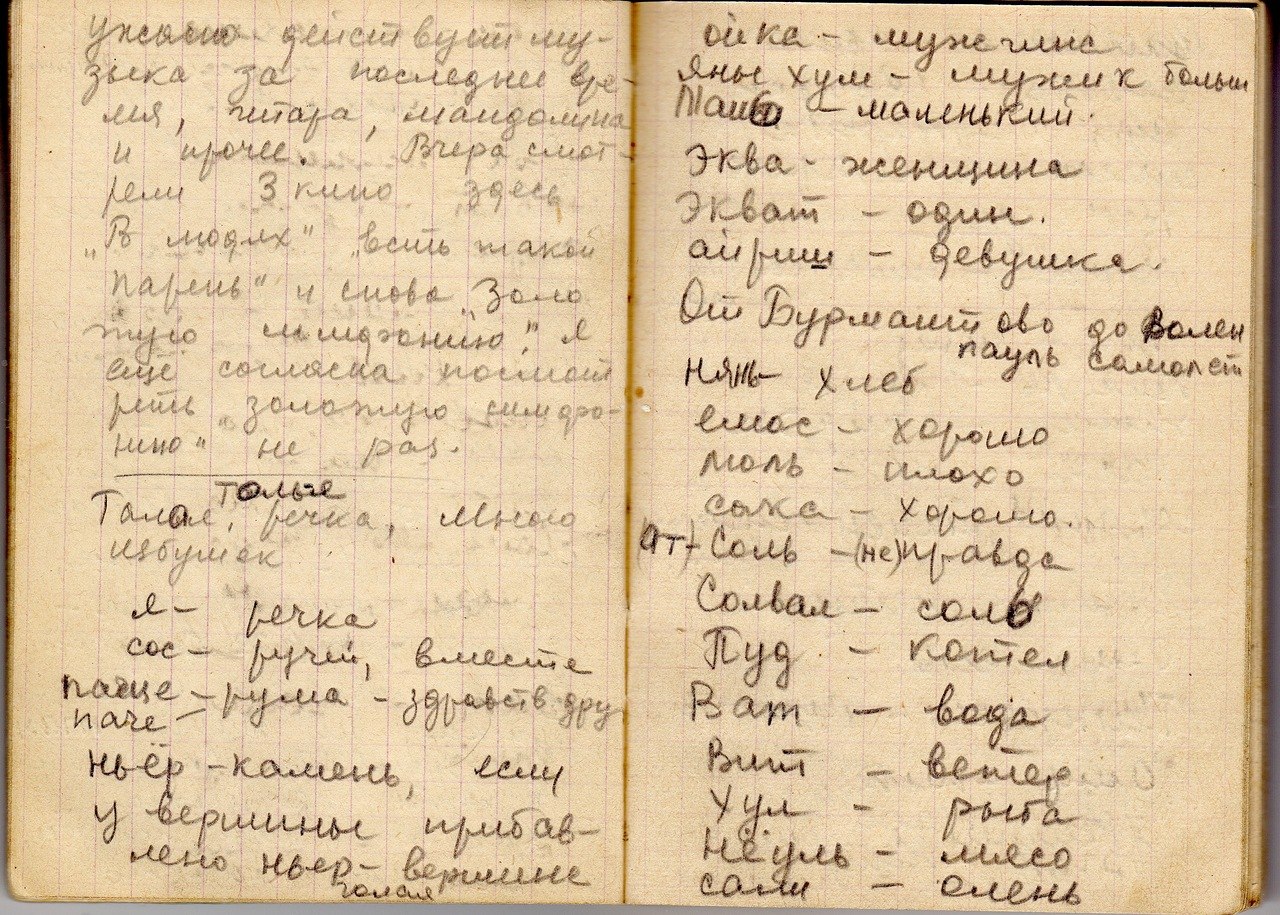 ужасно действует му-
зыка за последнее вре-
мя, гитара, мандолина
и прочее. Вчера смот-
рели 3 кино здесь
„В людях" „есть такой
парень" и снова „Золо
тую симфонию", я
ещё согласна посмот
реть „золотую симфо-
нию" не раз.
Толье
Талал, речка, много
избушек
я - речка
сос - ручей, вместе
паще - рума - здравств. дру
паче -
ньёр - камень, если
у вершины прибав-
лено ньер - вершине
голая
ойка - мужчина
яны хум - мужик больш
Мань - маленький.
Эква - женщина
Экват - один.
айриш - девушка.
От Бурмантово до Волен
пауль самолет
нянь - хлеб
емос - хорошо
люль - плохо
сака - хорошо.
(Ат) - Соль - (не) правда
Солвал - соль
Пуд - котел
Вит - вода
Вит - ветер
Хул - рыба
Нёуль - мясо
сали - олень